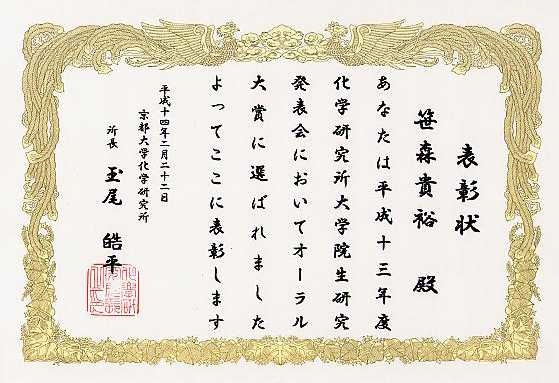 表彰状
笹森貴裕 殿
あなたは平成十三年度
化学研究所大学院生研究
発表会においてオーラル
大賞に選ばれました
よってここに表彰します
平成十四年二月二十二日
京都大学化学研究所
所長 玉尾 皓平